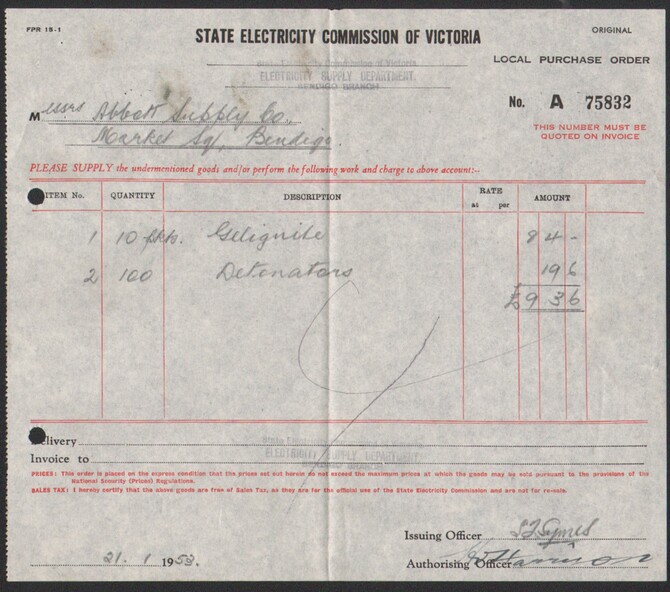 FPR 15-1
STATE ELECTRICITY COMMISSION OF VICTORIA
ORIGINAL
LOCAL PURCHASE ORDER
State Electricity Commission of Victoria
ELECTRICITY SUPPLY DEPARTMENT.
BENDIGO BRANCH
No. A 75832
THIS NUMBER MUST BE
QUOTED ON INVOICE
Messrs Abbott Supply Co.,
Market Sq, Bendigo.
PLEASE SUPPLY the undermentioned goods and/or perform the following work and charge to above account:--
ITEM No. QUANTITY DESCRIPTION RATE AMOUNT
at per
1 10 pkts. Gelignite 8 4 -
2 100 Detonators 19 6
£9 3 6
Delivery
State Electricity Commission of Victoria
Invoice to ELECTRICITY SUPPLY DEPARTMENT.
BENDIGO BRANCH
PRICES: This order is placed on the express condition that the prices set out herein do not exceed the maximum prices at which the goods may be sold pursuant to the provisions of the
National Security (Prices) Regulations.
SALES TAX: I hereby certify that the above goods are free of Sales Tax, as they are for the official use of the State Electricity Commission and are not for re-sale.
Issuing Officer Symes
21. 1 1953. Authorising Officer Harrison